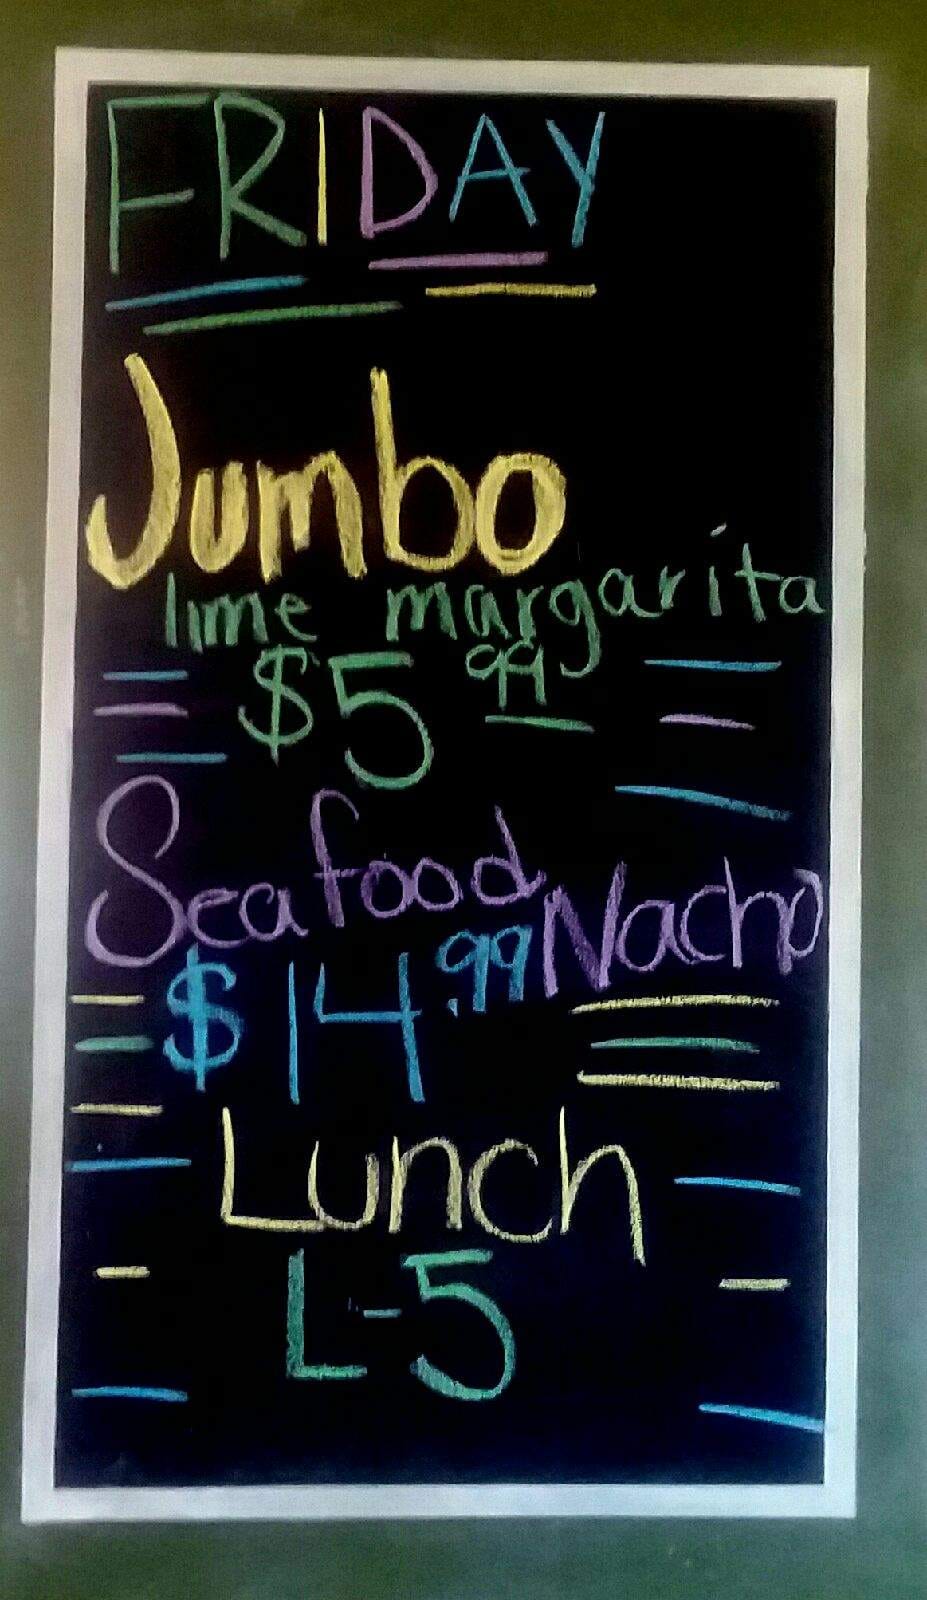 FRIDAY
Jumbo
lime margarita
$5 99
Seafood Nacho
$14.99
Lunch
L-5